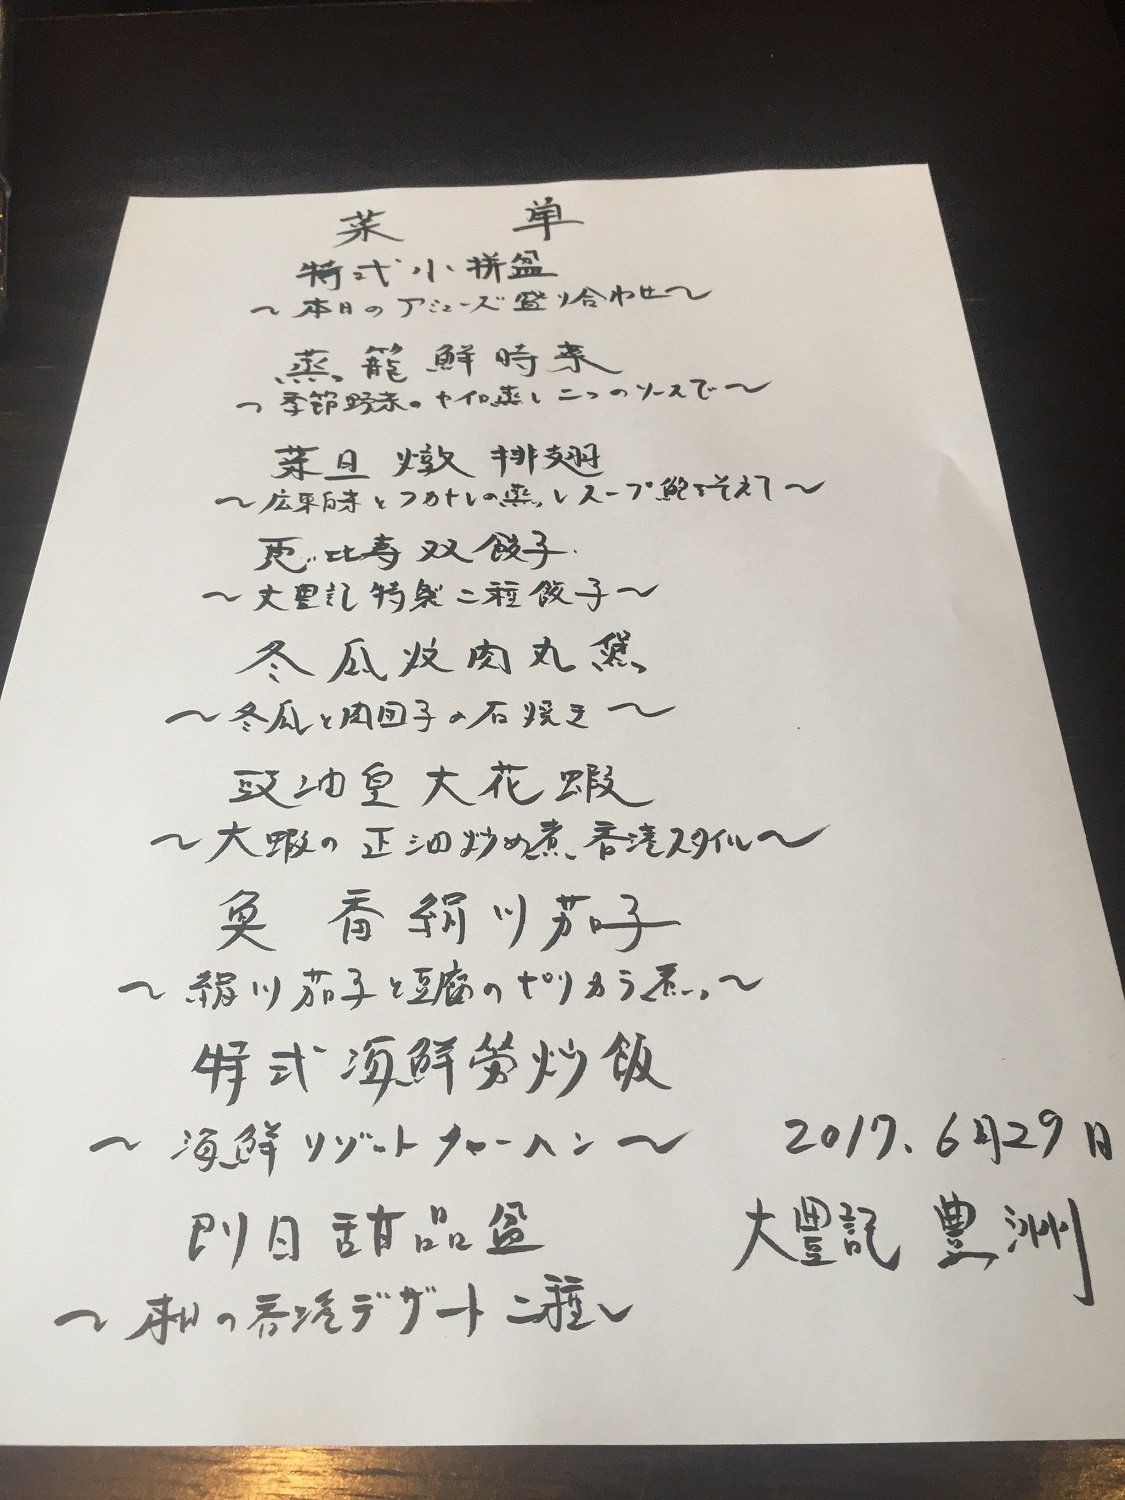 菜 単
特式小拼盆
～本日のアミューズ盛り合わせ～
蒸籠鮮時菜
～季節野菜のセイロ蒸し二つのソースで～
菜旦燉排翅
～広東白菜とフカヒレの蒸しスープ鮑を添えて～
恵比寿双餃子
～大豊記特製二種餃子～
冬瓜炆肉丸煲
～冬瓜と肉団子の石焼き～
豉油皇大花蝦
～大蝦の正油炒め煮香港スタイル～
魚香絹川茄子
～絹川茄子と豆腐のピリカラ煮～
特式海鮮労炒飯
～海鮮リゾットチャーハン～
2017.6月29日
即日甜品盆
大豊記 豊洲
～本日の香港デザート二種～